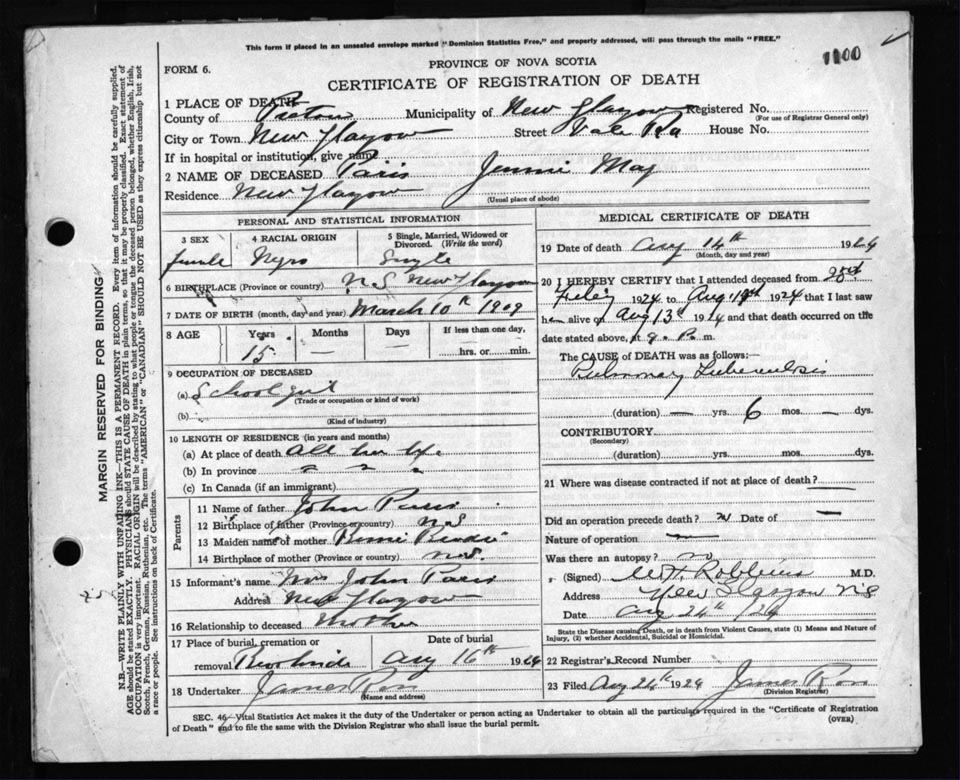 This form if placed in an unsealed envelope marked "Dominion Statistics Free," and properly addressed, will pass through the mails "FREE."
1100
PROVINCE OF NOVA SCOTIA
FORM 6.
CERTIFICATE OF REGISTRATION OF DEATH
1 PLACE OF DEATH
County of Pictou Municipality of New Glasgow Registered No.
(For use of Registrar General only)
City or Town New Glasgow Street Vale Rd House No.
If in hospital or institution, give name
2 NAME OF DECEASED Paris Jennie May
Residence New Glasgow
(Usual place of abode)
PERSONAL AND STATISTICAL INFORMATION
3 SEX 4 RACIAL ORIGIN 5 Single, Married, Widowed or Divorced. (Write the word)
female Single
6 BIRTHPLACE (Province or country) N S New Glasgow
7 DATE OF BIRTH (month, day and year) March 10th 1909
8 AGE Years Months Days If less than one day,
15 — — hrs. or min.
9 OCCUPATION OF DECEASED
(a) School girl
(Trade or occupation or kind of work)
(b)
(Kind of industry)
10 LENGTH OF RESIDENCE (in years and months)
(a) At place of death All her life
(b) In province " " "
(c) In Canada (if an immigrant)
Parents
11 Name of father John Paris
12 Birthplace of father (Province or country) N S
13 Maiden name of mother
14 Birthplace of mother (Province or country) N.S.
15 Informant's name Mrs John Paris
Address New Glasgow
16 Relationship to deceased Mother
17 Place of burial, cremation or removal Date of burial
Aug 16th 1924
18 Undertaker James Ross
(Name and address)
MEDICAL CERTIFICATE OF DEATH
19 Date of death Aug 14th 1924
(Month, day and year)
20 I HEREBY CERTIFY that I attended deceased from
1924 to Aug 14th 1924 that I last saw
her alive on Aug 13th 1924 and that death occurred on the
date stated above, at 9. P. m.
The CAUSE of DEATH was as follows:
Pulmonary Tuberculosis
(duration) — yrs. 6 mos. — dys.
CONTRIBUTORY
(Secondary)
(duration) yrs. mos. dys.
21 Where was disease contracted if not at place of death? —
Did an operation precede death? Date of —
Nature of operation —
Was there an autopsy? no
(Signed) Robbins M.D.
Address New Glasgow N S
Date Aug 24th /24
State the Disease causing Death, or in death from Violent Causes, state (1) Means and Nature of Injury, (2) whether Accidental, Suicidal or Homicidal.
22 Registrar's Record Number
23 Filed Aug 24th 1924 James Ross
(Division Registrar)
SEC. 46—Vital Statistics Act makes it the duty of the Undertaker or person acting as Undertaker to obtain all the particulars required in the "Certificate of Registration
of Death" and to file the same with the Division Registrar who shall issue the burial permit. (OVER)
MARGIN RESERVED FOR BINDING
N.B.—WRITE PLAINLY WITH UNFADING INK—THIS IS A PERMANENT RECORD. Every item of information should be carefully supplied.
AGE should be stated EXACTLY. PHYSICIANS should STATE CAUSE OF DEATH in plain terms, so that it may be properly classified. Exact statement of
OCCUPATION is very important. RACIAL ORIGIN will be described by stating to what people or tongue the deceased person belonged, whether English, Irish,
Scotch, French, German, Russian, Ruthenian, etc. The terms "AMERICAN" or "CANADIAN" SHOULD NOT BE USED as they express citizenship but not
a race or people. See instructions on back of Certificate.